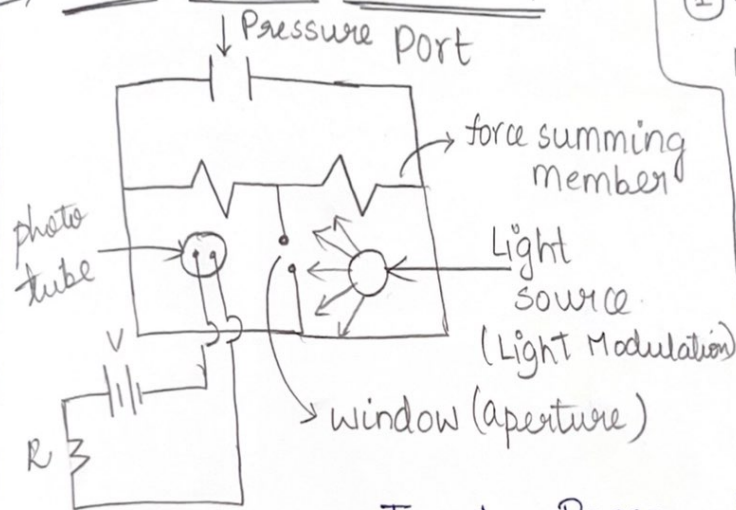 ①
Pressure Port
force summing
member
photo
tube
Light
source
(Light Modulation)
V
window (aperture)
R